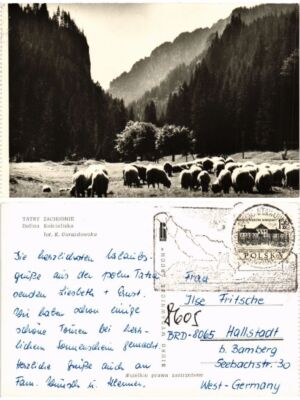 TATRY ZACHODNIE
Dolina Kościeliska
fot. K. Gorazdowska
Die herzlichsten Urlaubs-
grüße aus der poln. Tatra
senden Liesbeth + Ernst.
Wir haben schon einige
schöne Touren bei herr-
lichem Sonnenschein gemacht.
Herzliche Grüße auch an
Fam.
BIURO WYDAWNICZE „RUCH"
POLSKA
Frau
Ilse Fritsche
8605
BRD-8065 Hallstadt
b. Bamberg
Seebachstr. 30
West-Germany
Wszelkie prawa zastrzeżone